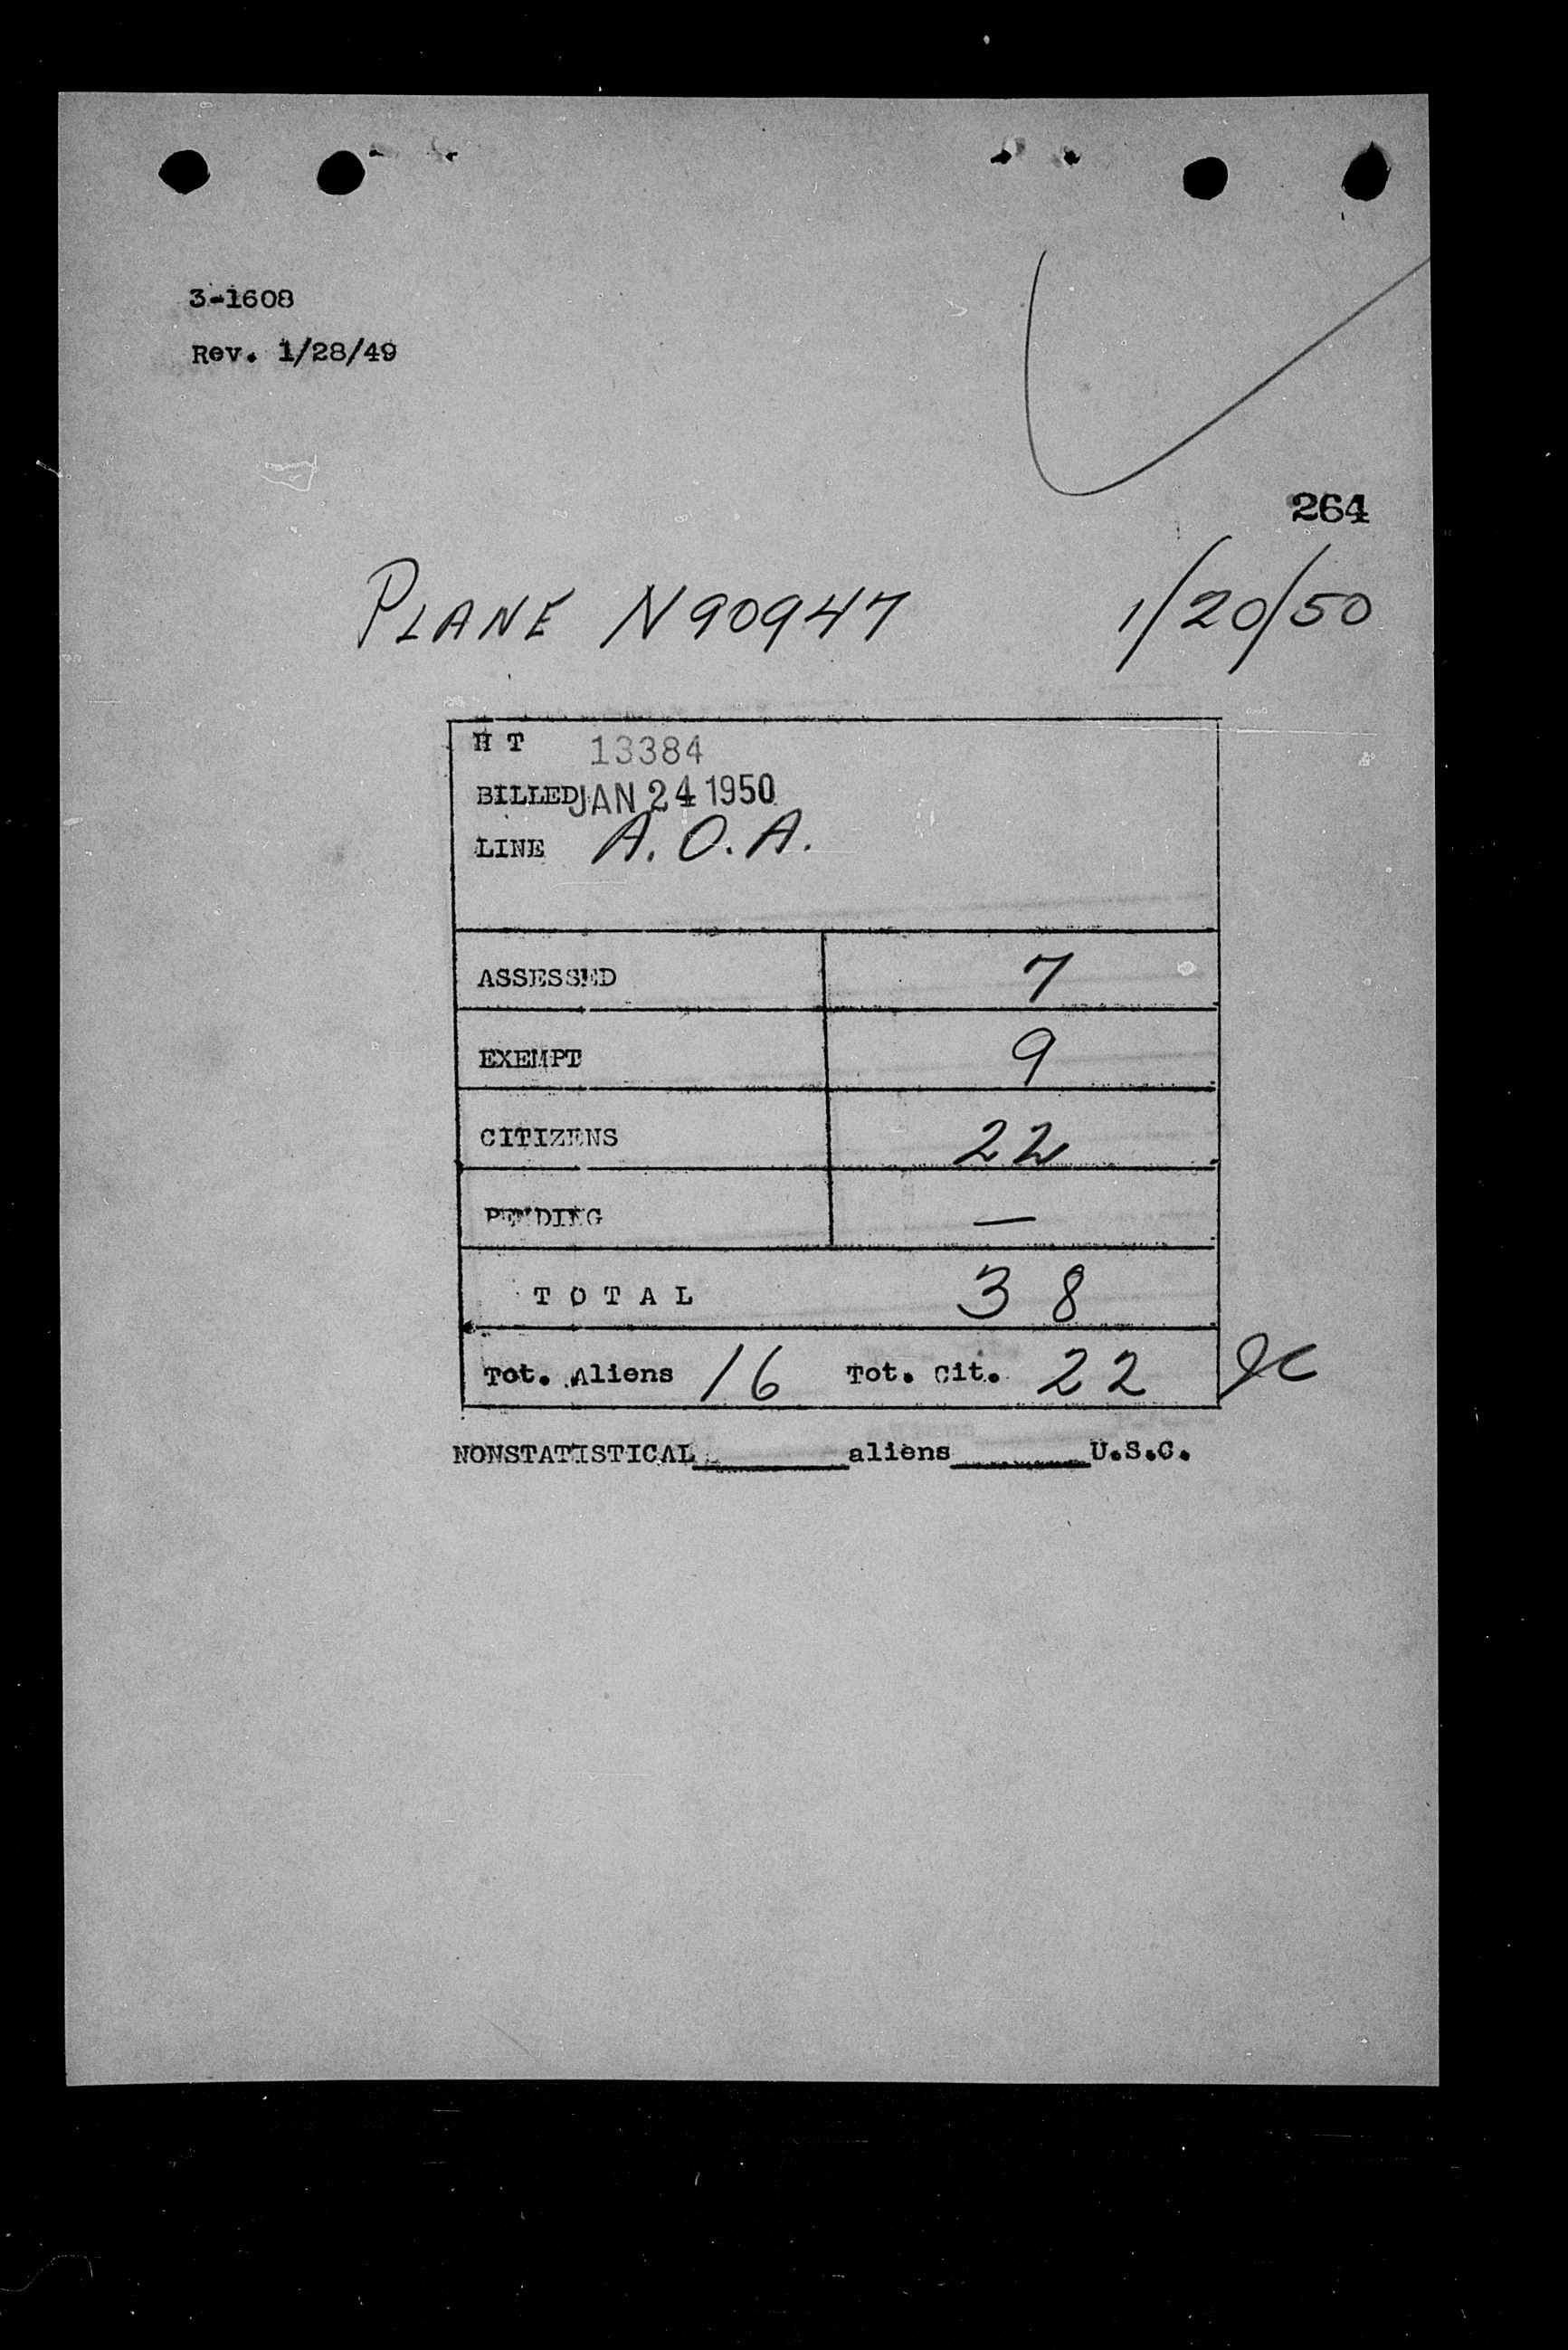 3-1608
Rev. 1/28/49
264
PLANE N90947 1/20/50
H T 13384
BILLED JAN 24 1950
LINE A.O.A.
ASSESSED 7
EXEMPT 9
CITIZENS 22
PENDING —
TOTAL 38
Tot. Aliens 16 Tot. Cit. 22
NONSTATISTICAL______aliens______U.S.C.